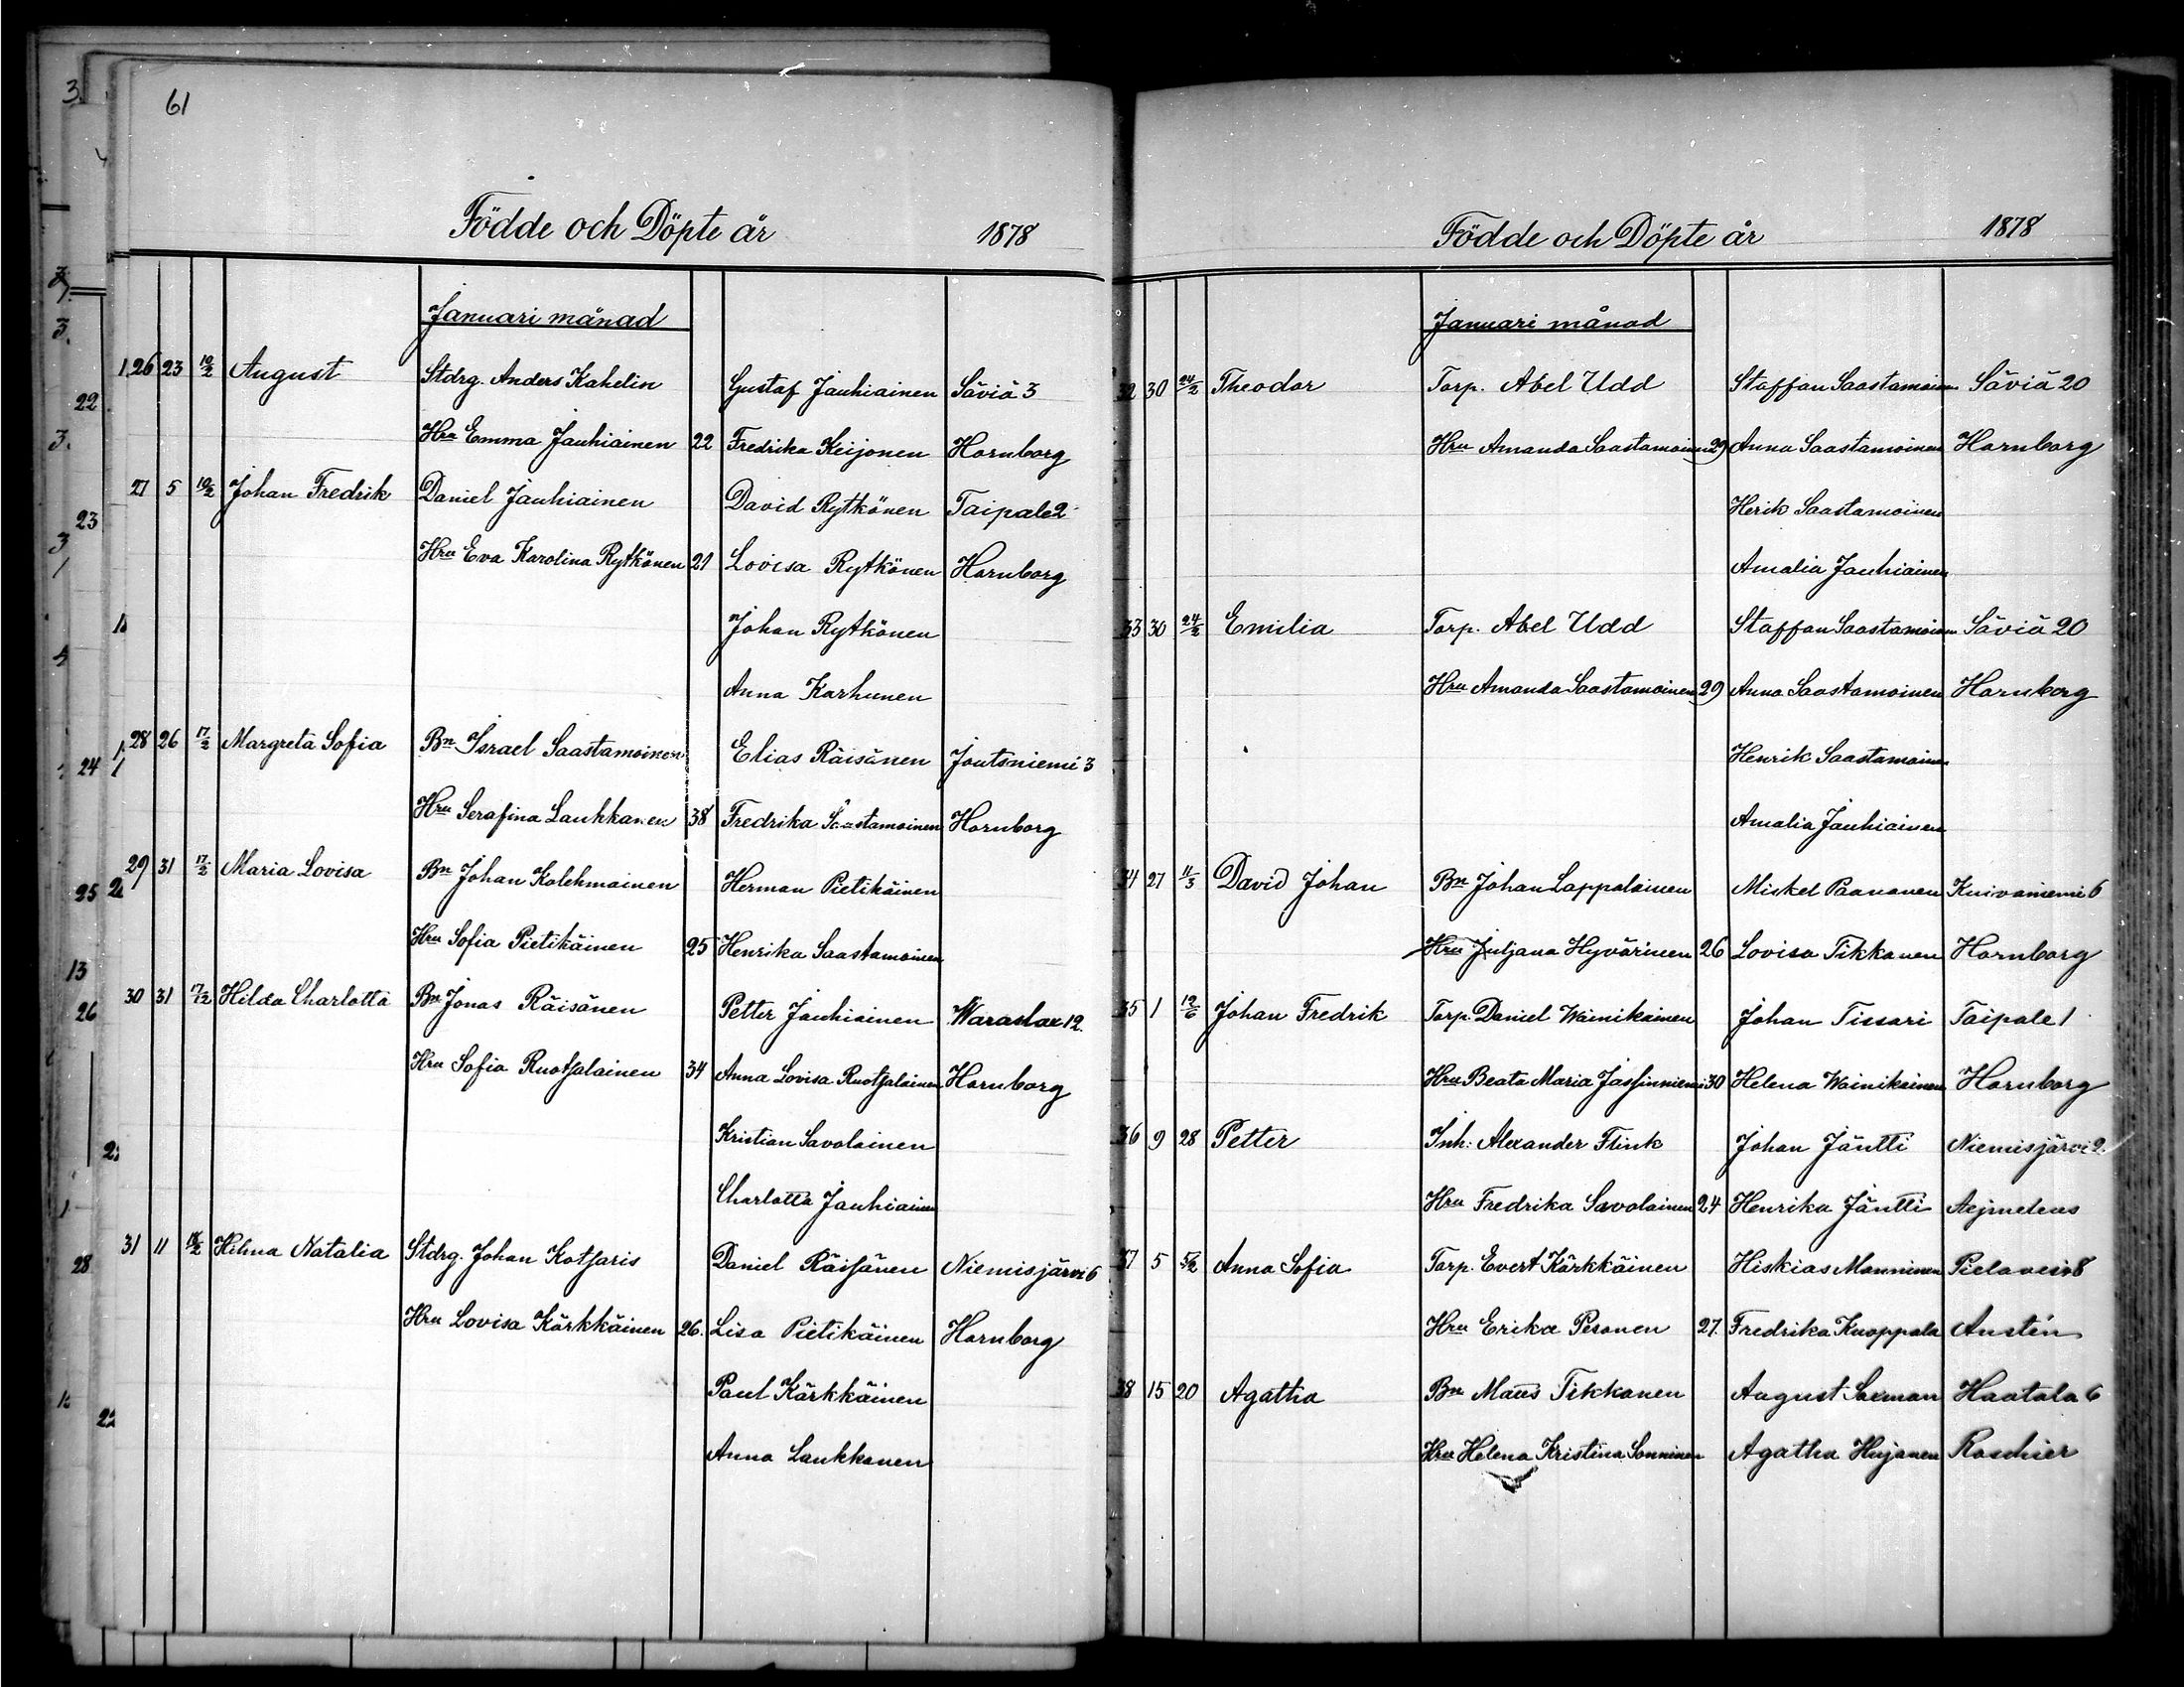 61
Födde och Döpte år 1878
Januari månad
26 23 10/2 August Stdrg. Anders Kahelin Gustaf Jauhiainen Säviä 3
Hru Emma Jauhiainen 22 Fredrika Keijonen Hornborg
27 5 10/2 Johan Fredrik Daniel Jauhiainen David Rytkönen Taipale 2
Hru Eva Karolina Rytkönen 21 Lovisa Rytkönen Hornborg
Johan Rytkönen
Anna Karhunen
28 26 17/2 Margreta Sofia Bn Israel Saastamoinen Elias Räisänen Joutsniemi 3
Hru Serafina Laukkanen 38 Fredrika Saastamoinen Hornborg
29 31 17/2 Maria Lovisa Bn Johan Kolehmainen Herman Pietikäinen
Hru Sofia Pietikäinen 25 Henrika Saastamoinen
30 31 17/2 Hilda Charlotta Bn Jonas Räisänen Petter Jauhiainen Waraslax 12.
Hru Sofia Ruotsalainen 34 Anna Lovisa Ruotsalainen Hornborg
Kristian Savolainen
Charlotta Jauhiainen
31 11 Hilma Natalia Stdrg. Johan Kotsaris Daniel Räisänen Niemisjärvi 6
Hru Lovisa Kärkkäinen 26. Lisa Pietikäinen Hornborg
Paul Kärkkäinen
Anna Laukkanen
Födde och Döpte år 1878
Januari månad
32 30 24/2 Theodor Torp. Abel Udd Staffan Saastamoinen Säviä 20
Hru Amanda Saastamoinen 29 Anna Saastamoinen Hornborg
Herik Saastamoinen
Amalia Jauhiainen
33 30 24/2 Emilia Torp. Abel Udd Staffan Saastamoinen Säviä 20
Hru Amanda Saastamoinen 29 Anna Saastamoinen Hornborg
Henrik Saastamoinen
Amalia Jauhiainen
34 27 11/3 David Johan Bn Johan Lappalainen Mickel Paananen Kuivaniemi 6
Hru Juljana Hyvärinen 26 Lovisa Tikkanen Hornborg
35 1 12/6 Johan Fredrik Torp. Daniel Wainikainen Johan Tissari Taipale 1
Hru Beata Maria Jassinniemi 30 Helena Wainikainen Hornborg
36 9 28 Petter Inh. Alexander Flink Johan Jäntti Niemisjärvi 2
Hru Fredrika Savolainen 24 Henrika Jäntti Aejmelæus
37 5 5/2 Anna Sofia Torp. Evert Kärkkäinen Hiskias Manninen Pielavesi 8
Hru Erika Pesonen 27. Fredrika Knoppala Austén
38 15 20 Agatha Bn Maus Tikkanen August Saxman Haatala 6
Hru Helena Kristina Sonninen Agatha Hujanen Roschier